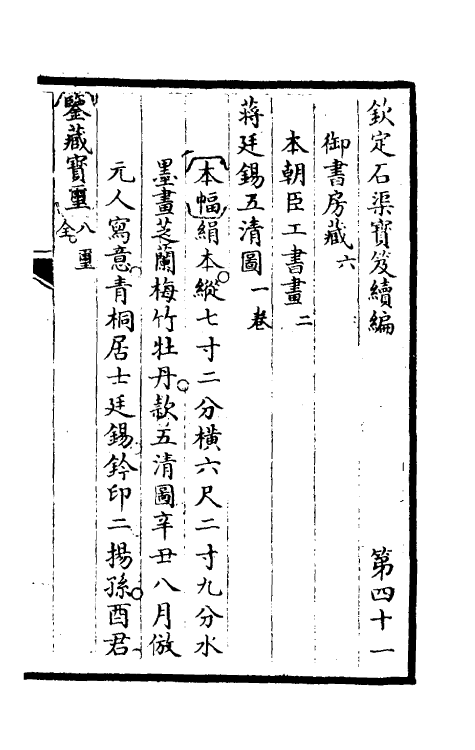 欽定石渠寶笈續編 第四十一
御書房藏六
本朝臣工書畫二
蔣廷錫五清圖一卷
本幅絹本縱七寸二分橫六尺二寸九分水
墨畫芝蘭梅竹牡丹款五清圖辛丑八月倣
元人寫意青桐居士廷錫鈐印二揚孫酉君
鑒藏寶璽八璽全